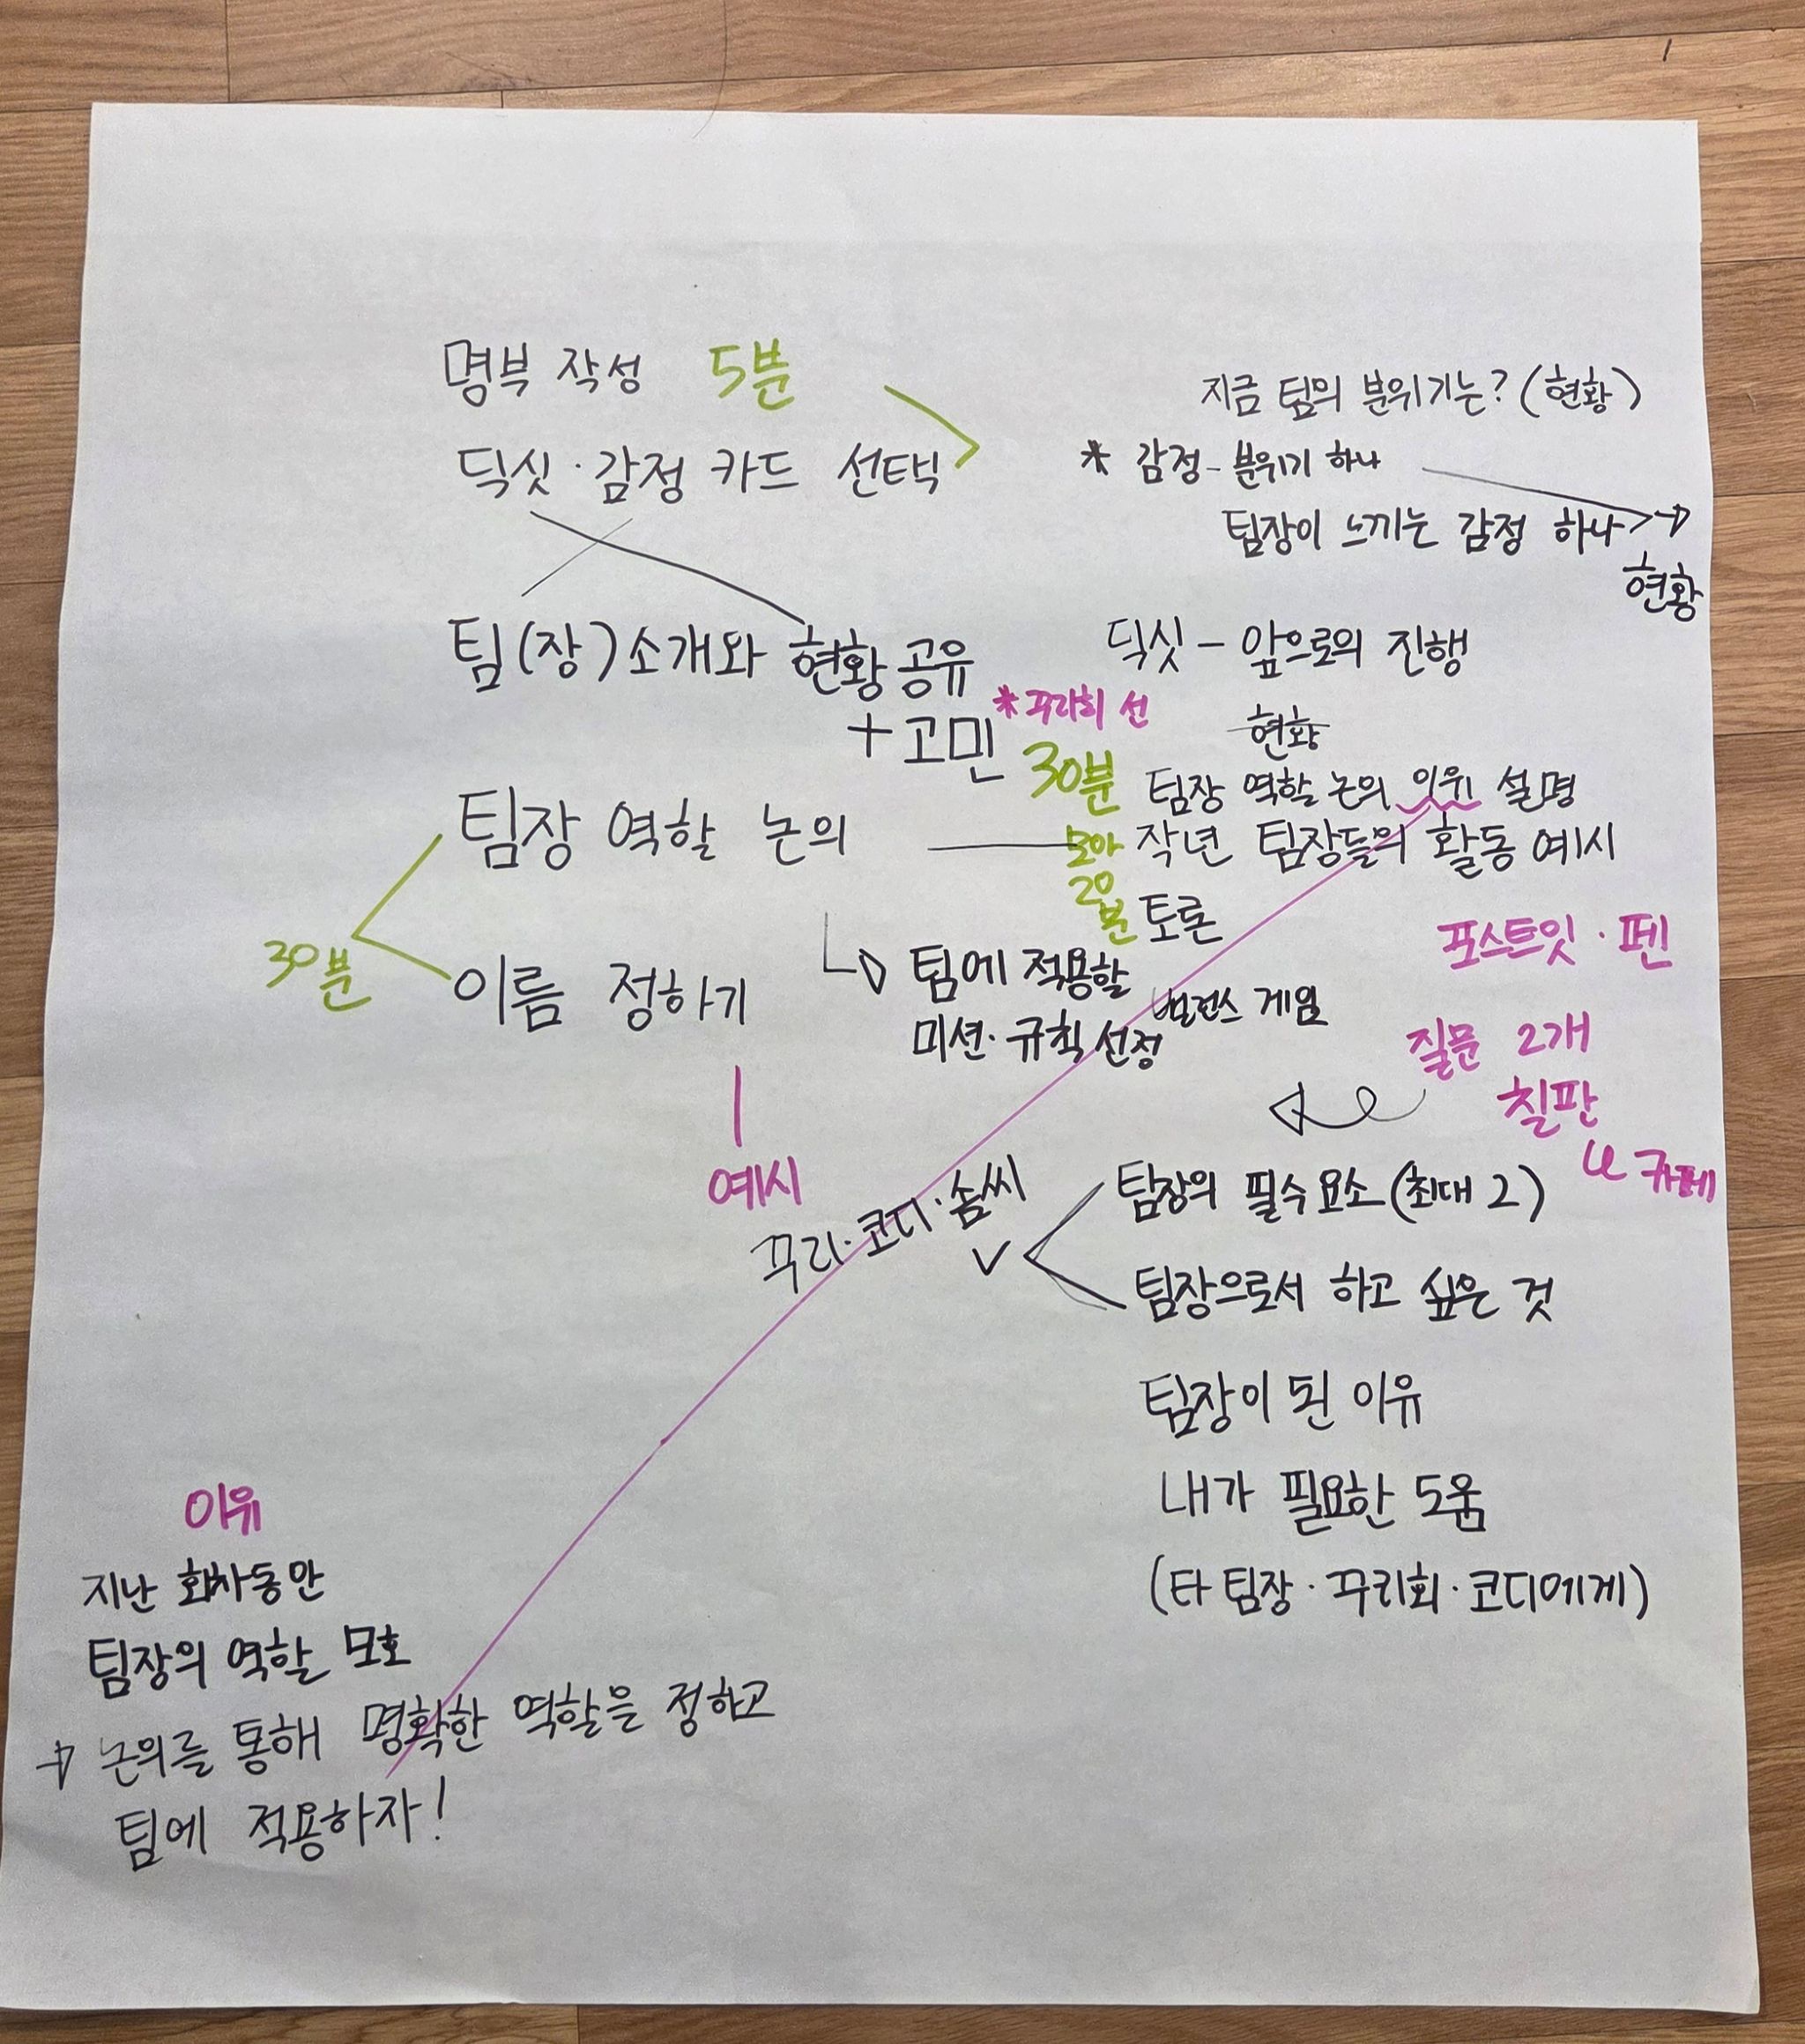 명부 작성 5분
딕싯·감정 카드 선택
지금 팀의 분위기는? (현황)
* 감정 - 분위기 하나
팀장이 느끼는 감정 하나 →
현황
팀(장) 소개와 현황 공유
+ 고민
* 꾸리회 선
30분
딕싯 - 앞으로의 진행
현황
팀장 역할 논의
30분
이름 정하기
예시
팀장 역할 논의 이유 설명
작년 팀장들의 활동 예시
20분
토론
→ 팀에 적용할
미션·규칙 선정
밸런스 게임
포스트잇·펜
질문 2개
칠판
카페
꾸리·코디·솜씨
팀장의 필수 요소 (최대 2)
팀장으로서 하고 싶은 것
팀장이 된 이유
내가 필요한 도움
(타 팀장·꾸리회·코디에게)
이유
지난 회차동안
팀장의 역할 모호
→ 논의를 통해 명확한 역할을 정하고
팀에 적용하자!